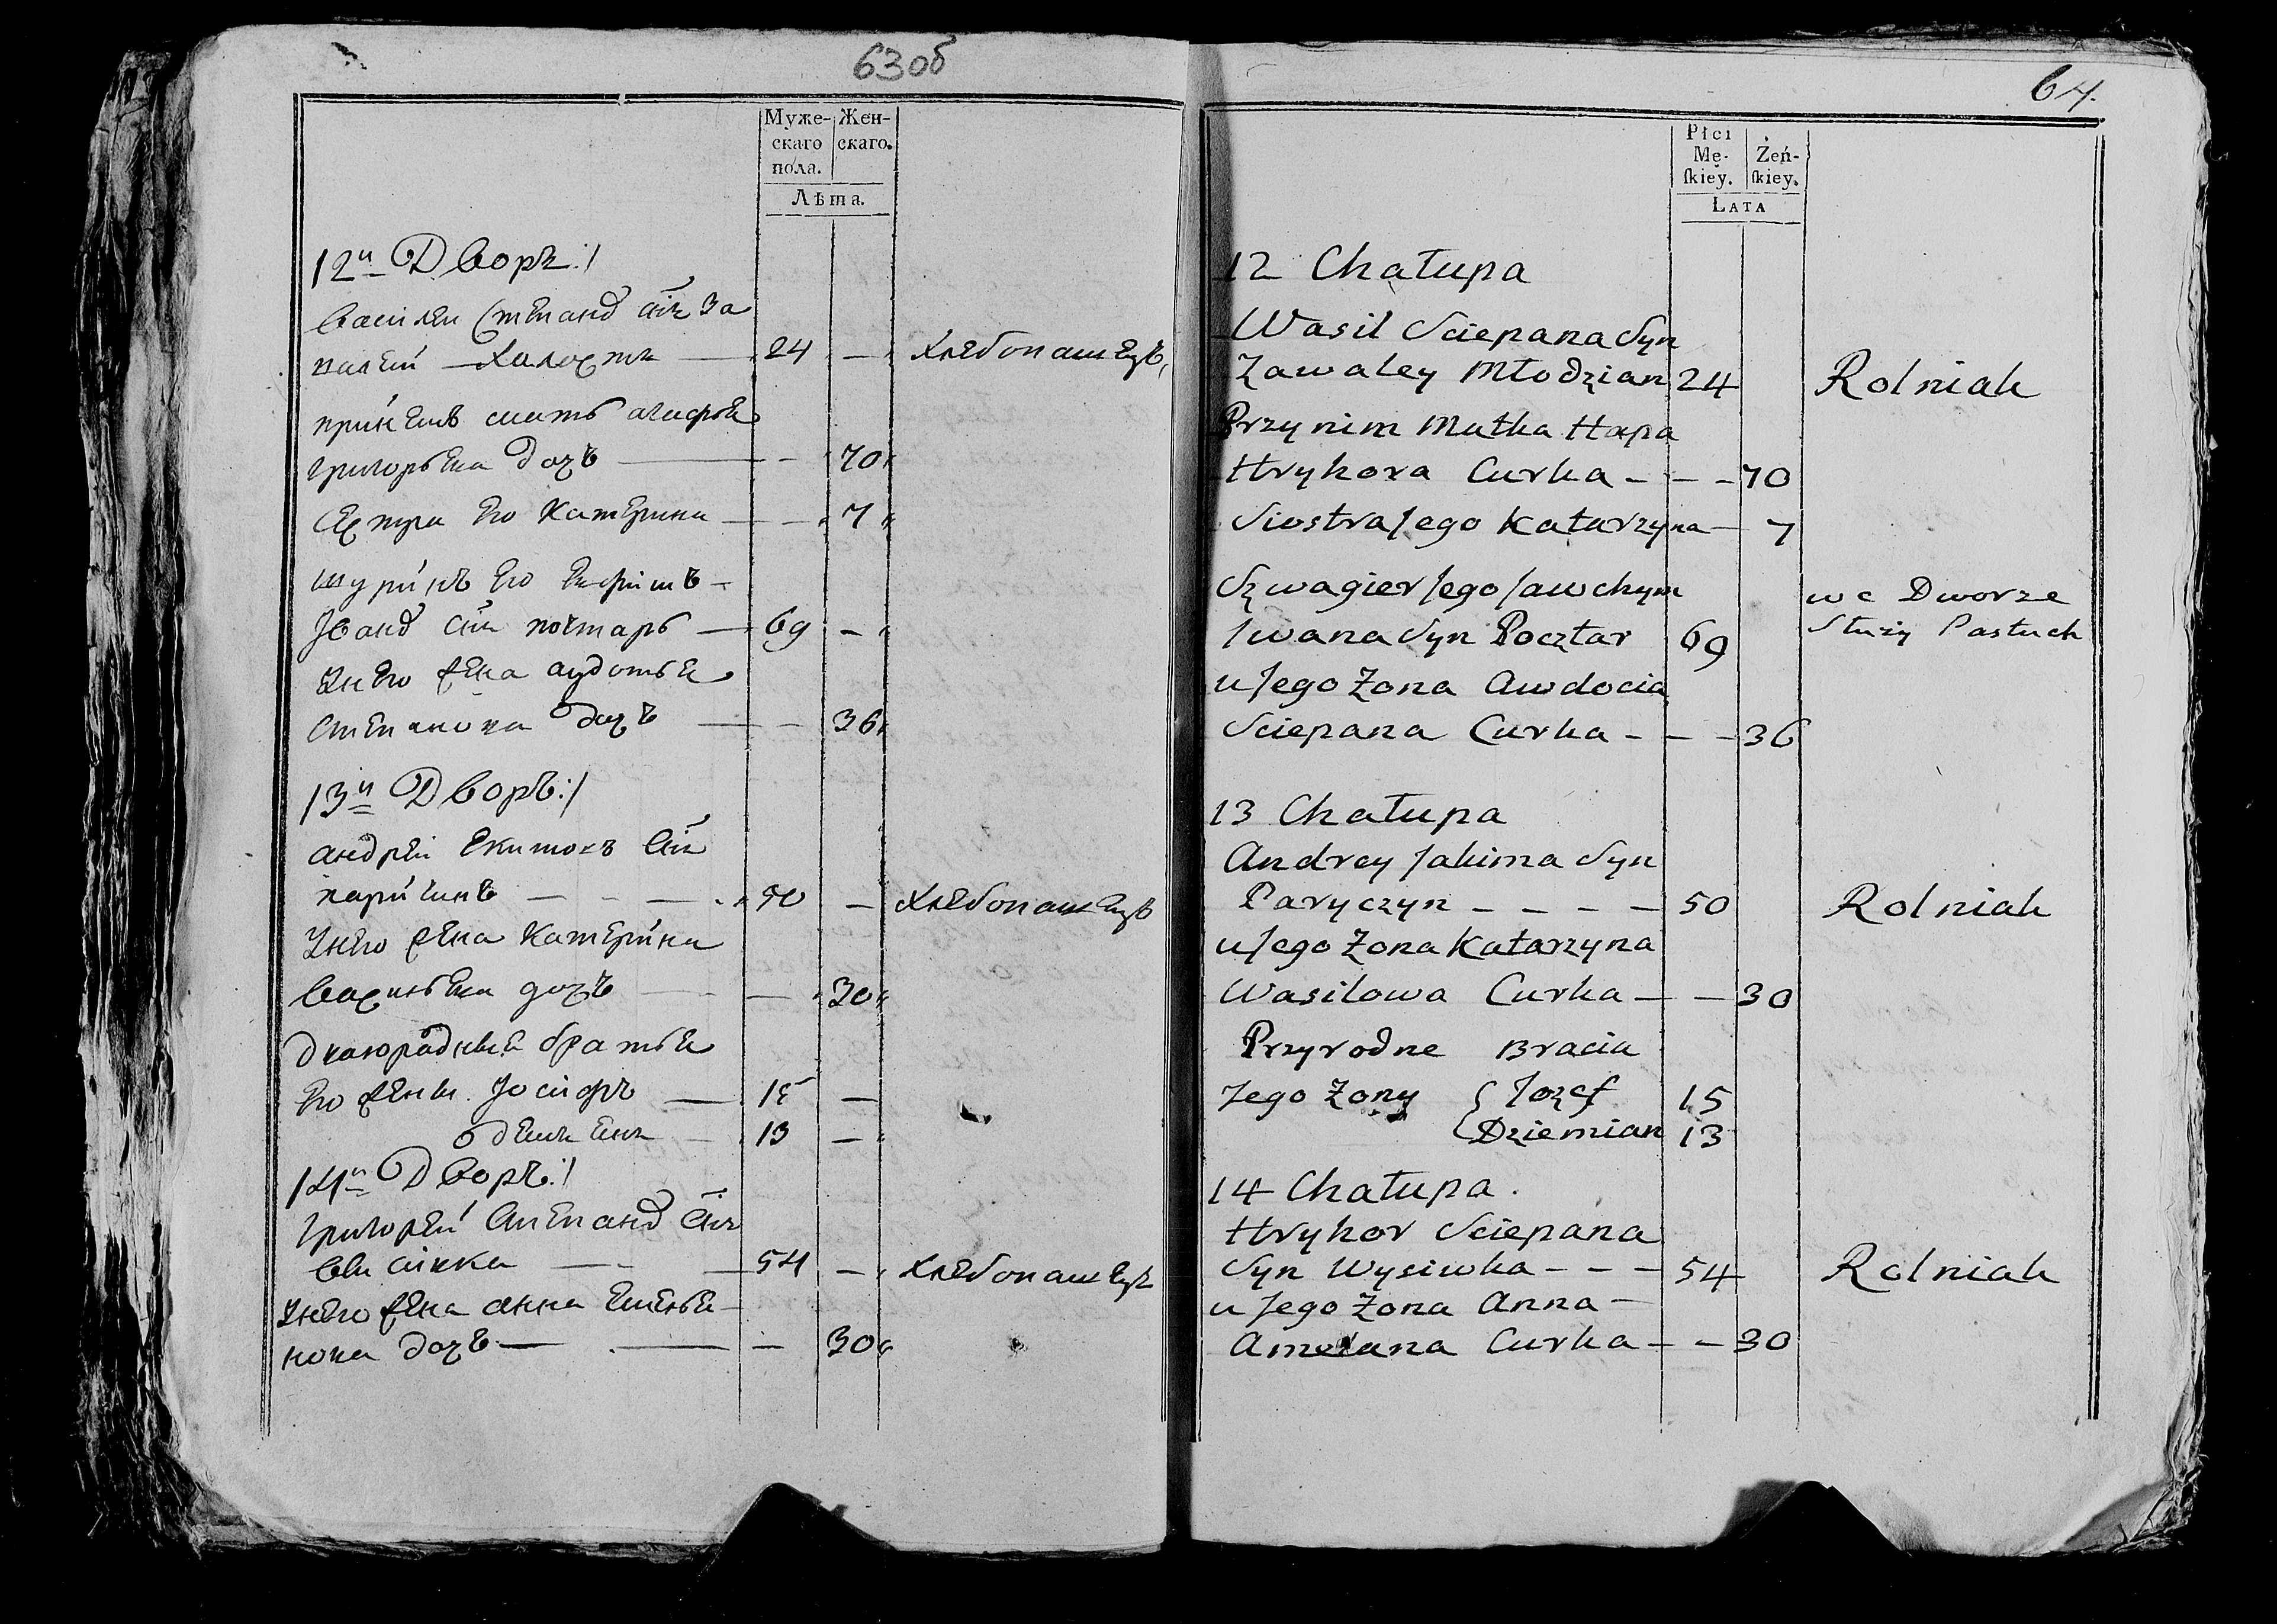 63об
Муже- Жен-
скаго скаго.
пола.
Лѣта.
12й Дворъ:/
Василей Степанов сiн За
валей — Холостъ — 24 — Хлебопашецъ,
при нем мать агафья
григорьева дочь — 70
Сестра его Катерина — — 7
шурин его Ефiмъ —
Iванов сiн почтарь — 69 —
Унего жена аудотья
Степанова дочь — — 36
13й Дворъ:/
андрей Екимовъ Сiн
паричинъ — — — 50 — Хлебопашецъ
Унего жена Катерина
Васильева дочь — — 30
двоюродные братья
его жены. Iосифъ — 15 —
демьенъ — 13 —
14й Дворъ:/
григорей Степанов Сiн
высiвка — — 54 — Хлебопашецъ
Унего жена анна Емелья-
нова дочь — — — 30
64.
Płci
Mę- Żeń-
ſkiey. ſkiey.
LATA
12 Chałupa
Wasil Sciepana Syn
Zawaley Młodzian 24 Rolnik
Przy nim Matka Hapa
Hryhora Curka - - - 70
Siostra Jego Katarzyna — 7
Szwagier Jego Jawchym we Dworze
Jwana Syn Pocztar 69 Służy Pastuch
u Jego Zona Awdocia
Sciepana Curka - - - 36
13 Chałupa
Andrey Jakima Syn
Paryczyn - - - - 50 Rolniak
u Jego Zona Katarzyna
Wasilowa Curka — — 30
Przyrodne Bracia
Jego Zony { Jozef 15
Dziemian 13
14 Chałupa.
Hryhor Sciepana
Syn Wysiwka - - - 54 Rolniak
u Jego Zona Anna —
Amelana Curka — — 30